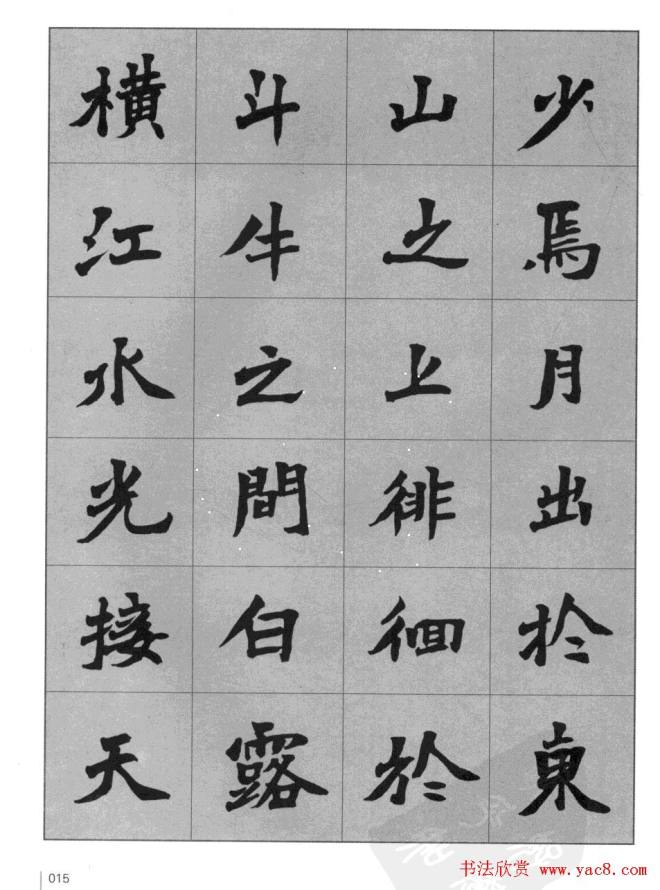 少焉月出於東
山之上徘徊於
斗牛之間白露
橫江水光接天
015
书法欣赏 www.yac8.com